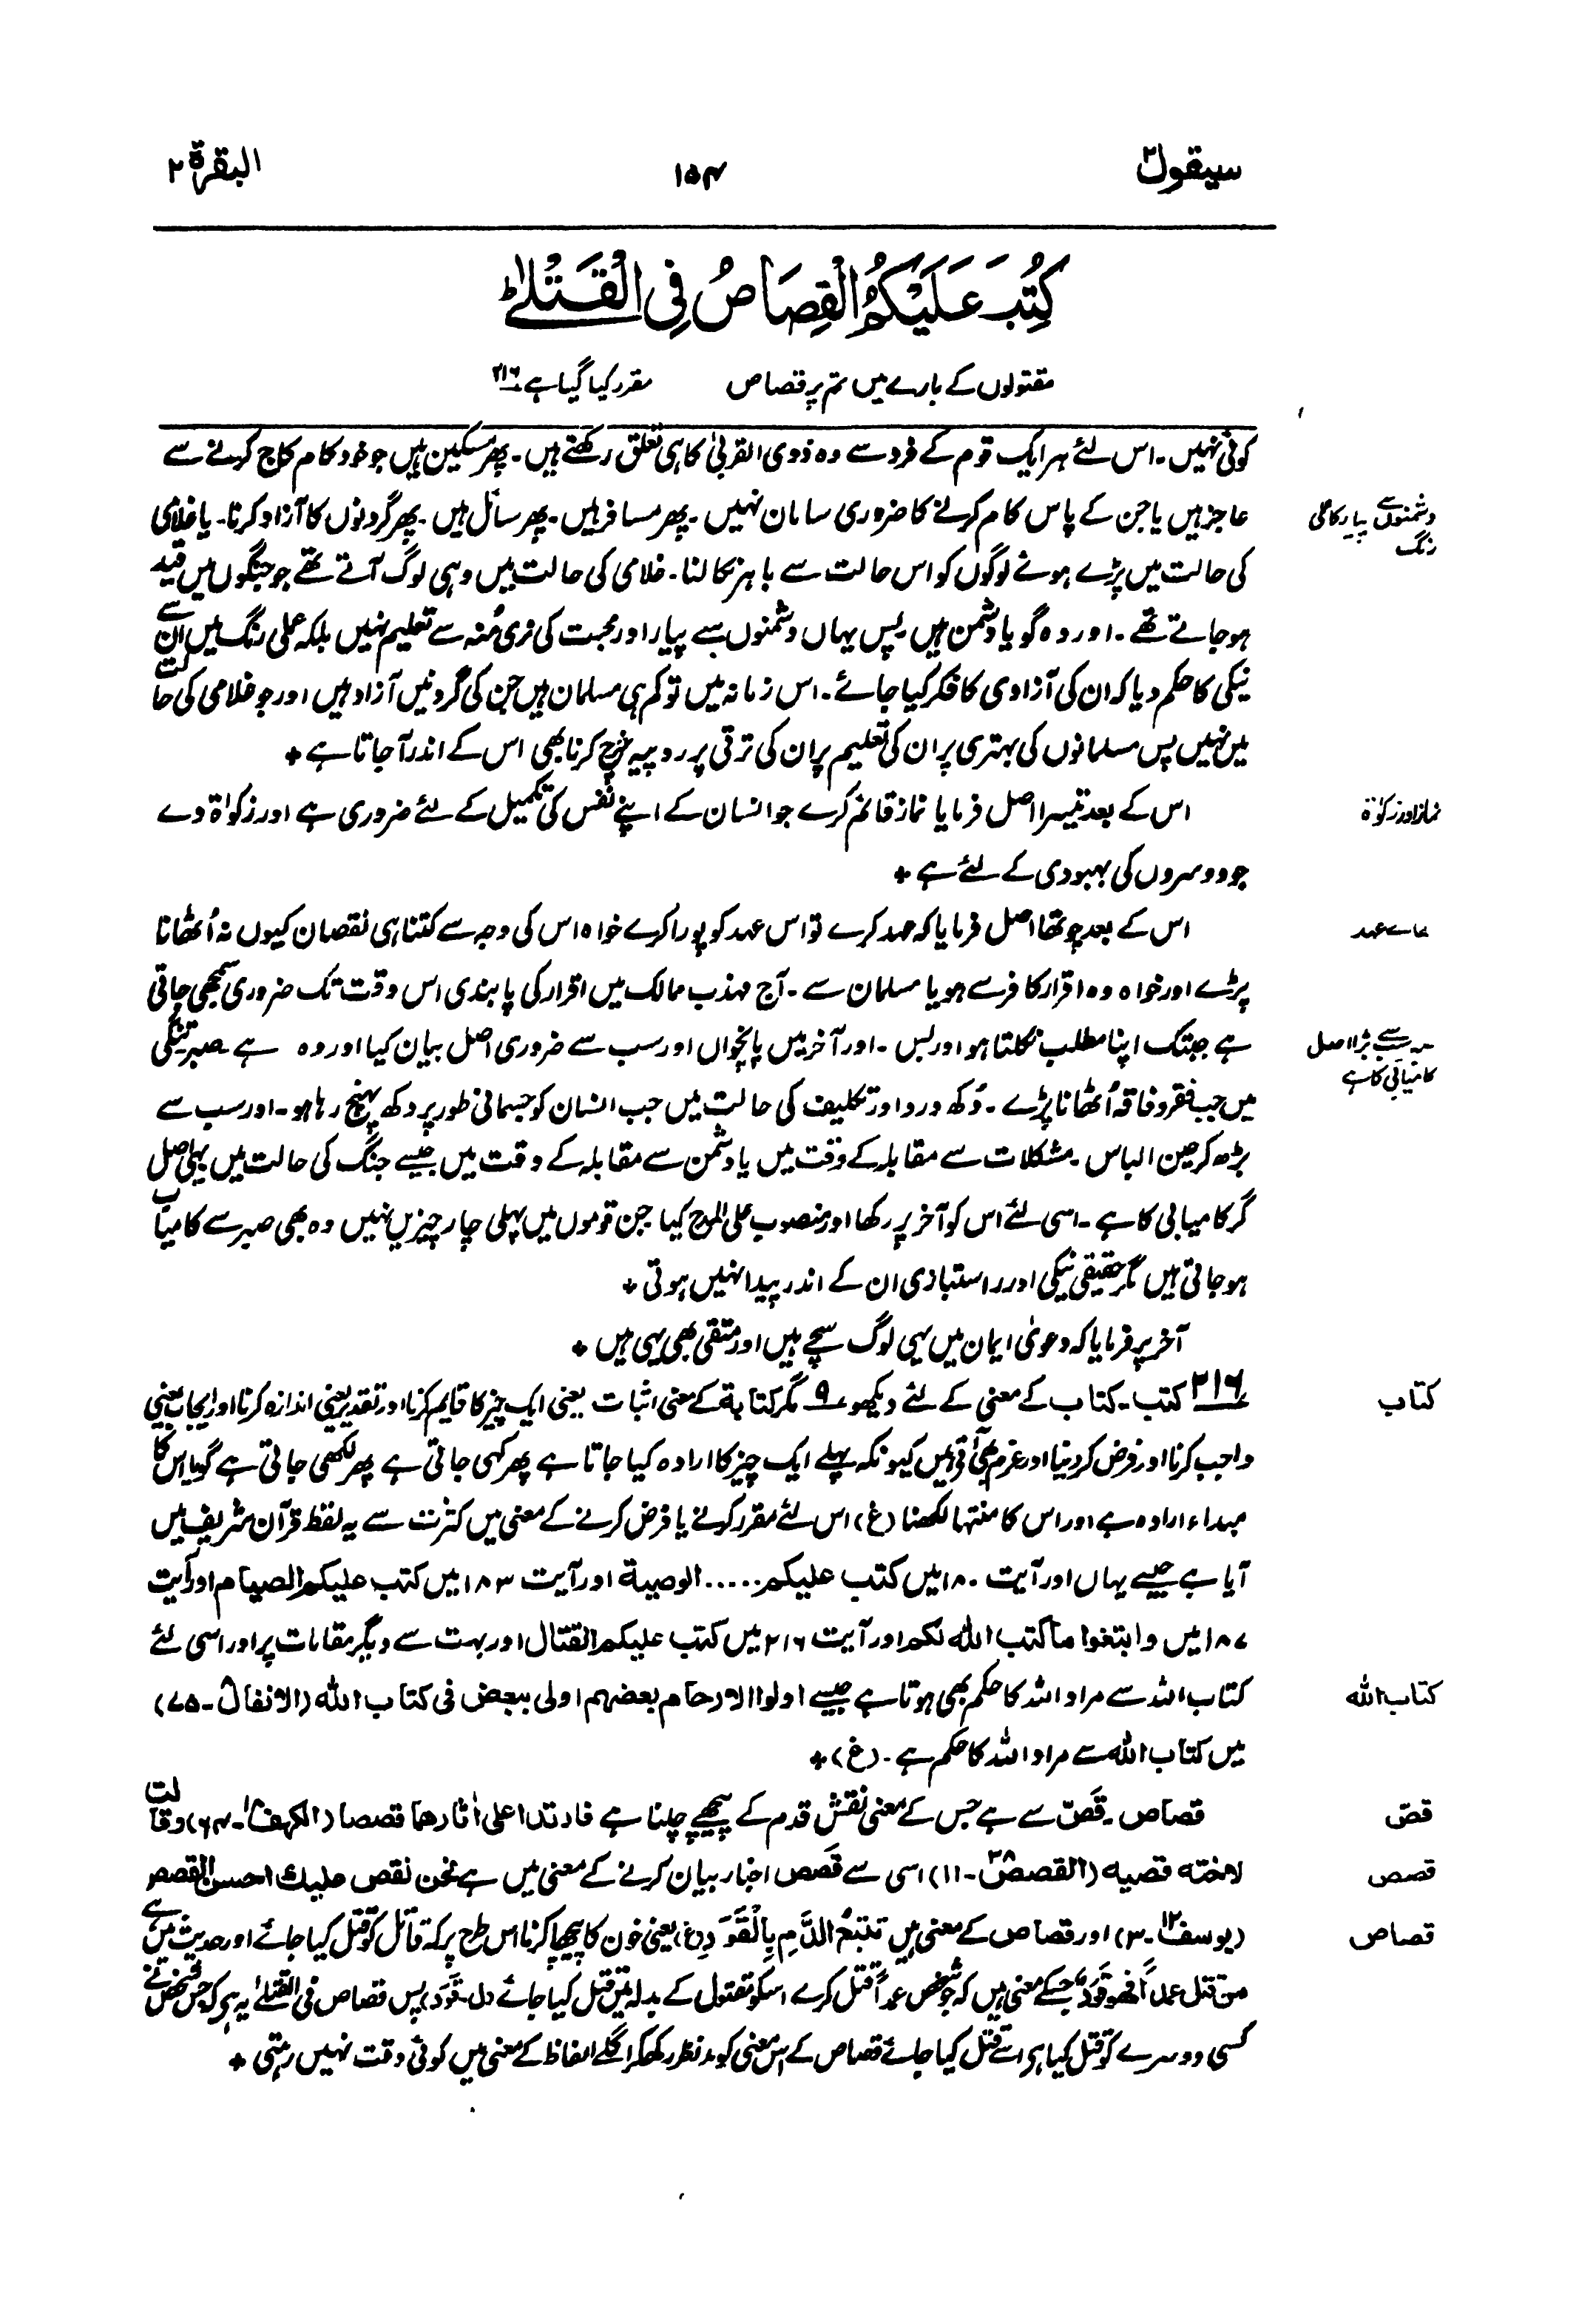 سیقول ۲
۱۵۴
البقرة ۲
كُتِبَ عَلَيْكُمُ الْقِصَاصُ فِي الْقَتْلٰى ؕ
مقتولوں کے بارے میں تم پر قصاص مقرر کیا گیا ہے ۲۱۶
کوئی نہیں۔ اس لئے ہر ایک قوم کے فرد سے وہ ذوی القربیٰ کا ہی تعلق رکھتے ہیں۔ پھر مسکین ہیں جو خود کام کاج کرنے سے
عاجز ہیں یا جن کے پاس کام کرنے کا ضروری سامان نہیں۔ پھر مسافر ہیں۔ پھر سائل ہیں۔ پھر گردنوں کا آزاد کرنا۔ یا غلامی
دشمنوں سے پیار کا عملی
رنگ
کی حالت میں پڑے ہوئے لوگوں کو اس حالت سے باہر نکالنا۔ غلامی کی حالت میں وہی لوگ آتے تھے جو جنگوں میں قید
ہو جاتے تھے۔ اور وہ گویا دشمن ہیں پس یہاں دشمنوں سے پیار اور محبت کی نری مُنہ سے تعلیم نہیں بلکہ عملی رنگ میں ان سے
نیکی کا حکم دیا کہ ان کی آزادی کا فکر کیا جائے۔ اس زمانہ میں تو کم ہی مسلمان ہیں جن کی گردنیں آزاد ہیں اور جو غلامی کی حالت
میں نہیں پس مسلمانوں کی بہتری پر ان کی تعلیم پر ان کی ترقی پر روپیہ خرچ کرنا بھی اس کے اندر آجاتا ہے +
اس کے بعد تیسرا اصل فرمایا نماز قائم کرے جو انسان کے اپنے نفس کی تکمیل کے لئے ضروری ہے اور زکوٰۃ دے
نماز اور زکوٰۃ
جو دوسروں کی بہبودی کے لئے ہے +
اس کے بعد چوتھا اصل فرمایا کہ عہد کرے تو اس عہد کو پورا کرے خواہ اس کی وجہ سے کتنا ہی نقصان کیوں نہ اُٹھانا
عہد
پڑے اور خواہ وہ اقرار کافر سے ہو یا مسلمان سے۔ آج مہذب ممالک میں اقرار کی پابندی اس وقت تک ضروری سمجھی جاتی
ہے جبتک اپنا مطلب نکلتا ہو اور بس۔ اور آخر میں پانچواں اور سب سے ضروری اصل بیان کیا اور وہ ہے صبر تنگی
سب سے بڑا اصل
کامیابی کا ہے
میں جب فقر و فاقہ اُٹھانا پڑے۔ دُکھ درد اور تکلیف کی حالت میں جب انسان کو جسمانی طور پر دکھ پہنچ رہا ہو۔ اور سب سے
بڑھ کر حین الباس۔ مشکلات سے مقابلہ کے وقت میں یا دشمن سے مقابلہ کے وقت میں جیسے جنگ کی حالت میں یہی اصل
گر کامیابی کا ہے۔ اسی لئے اس کو آخر پر رکھا اور منصوب علی المدح کیا جن قوموں میں پہلی چار چیزیں نہیں وہ بھی صبر سے کامیاب
ہو جاتی ہیں مگر حقیقی نیکی اور راستبازی ان کے اندر پیدا نہیں ہوتی +
آخر پر فرمایا کہ دعویٰ ایمان میں یہی لوگ سچے ہیں اور متقی بھی یہی ہیں +
۲۱۶ کتب۔ کتاب کے معنی کے لئے دیکھو ۹ مگر کتابة کے معنی اثبات یعنی ایک چیز کا قایم کرنا اور تقدیر یعنی اندازہ کرنا اور ایجاب یعنی
کتاب
واجب کرنا اور فرض کر دینا اور عزم بھی آتے ہیں کیونکہ پہلے ایک چیز کا ارادہ کیا جاتا ہے پھر کہی جاتی ہے پھر لکھی جاتی ہے گویا اس کا
مبداء ارادہ ہے اور اس کا منتہا لکھنا (غ) اس لئے مقرر کرنے یا فرض کرنے کے معنی میں کثرت سے یہ لفظ قرآن شریف میں
آیا ہے جیسے یہاں اور آیت ۱۸۰ میں کتب علیکم..... الوصیة اور آیت ۱۸۳ میں کتب علیکم الصیام اور آیت
۱۸۷ میں وابتغوا ما کتب اللہ لکم اور آیت ۲۱۶ میں کتب علیکم القتال اور بہت سے دیگر مقامات پر اور اسی لئے
کتاب اللہ سے مراد اللہ کا حکم بھی ہوتا ہے جیسے اولوا الارحام بعضہم اولی ببعض فی کتاب اللہ (الانفال ۸۔ ۷۵)
کتاب اللہ
میں کتاب اللہ سے مراد اللہ کا حکم ہے۔ (غ) +
قصاص۔ قَصّ سے ہے جس کے معنی نقش قدم کے پیچھے چلنا ہے فارتدا علی اٰثارھما قصصا (الکہف ۱۸۔ ۶۴) وقالت
قصّ
لاختہ قصیہ (القصص ۲۸۔ ۱۱) اسی سے قَصَص اخبار بیان کرنے کے معنی میں ہے نحن نقص علیك احسن القصص
قصص
(یوسف ۱۲۔ ۳) اور قصاص کے معنی ہیں تتبعُ الدَّمِ بِالْقَوَدِ (غ) یعنی خون کا پیچھا کرنا اس طرح پر کہ قاتل کو قتل کیا جائے اور حدیث میں ہے
قصاص
من قتل عمداً فھو قَوَدٌ جسکے معنی ہیں کہ جو شخص عمداً قتل کرے اسکو مقتول کے بدلہ میں قتل کیا جائے (ل۔ قَوَد) پس قصاص فی القتلیٰ یہ ہی کہ جس شخص نے
کسی دوسرے کو قتل کیا ہو اسے قتل کیا جائے قصاص کے اس معنی کو مد نظر رکھکر اگلے الفاظ کے معنی میں کوئی دقت نہیں رہتی +